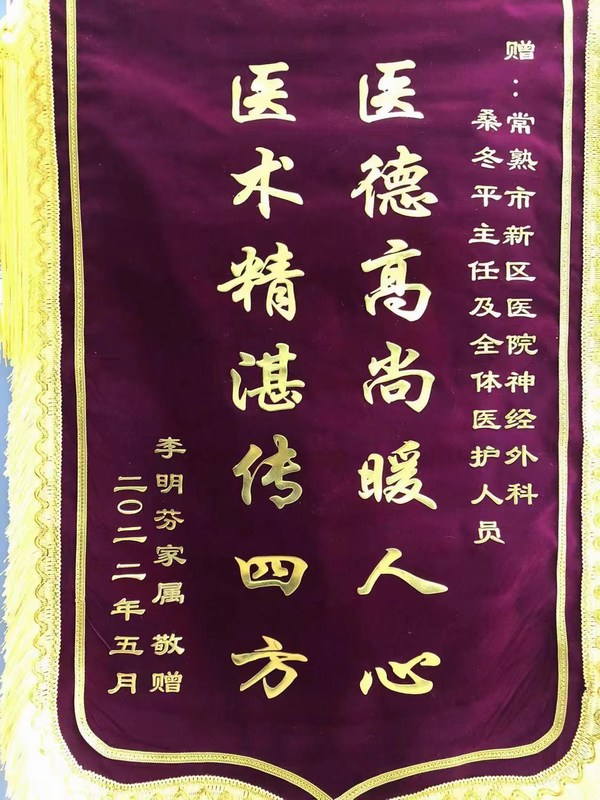 赠：常熟市新区医院神经外科
桑冬平主任及全体医护人员
医德高尚暖人心
医术精湛传四方
李明芬家属敬赠
二〇二二年五月